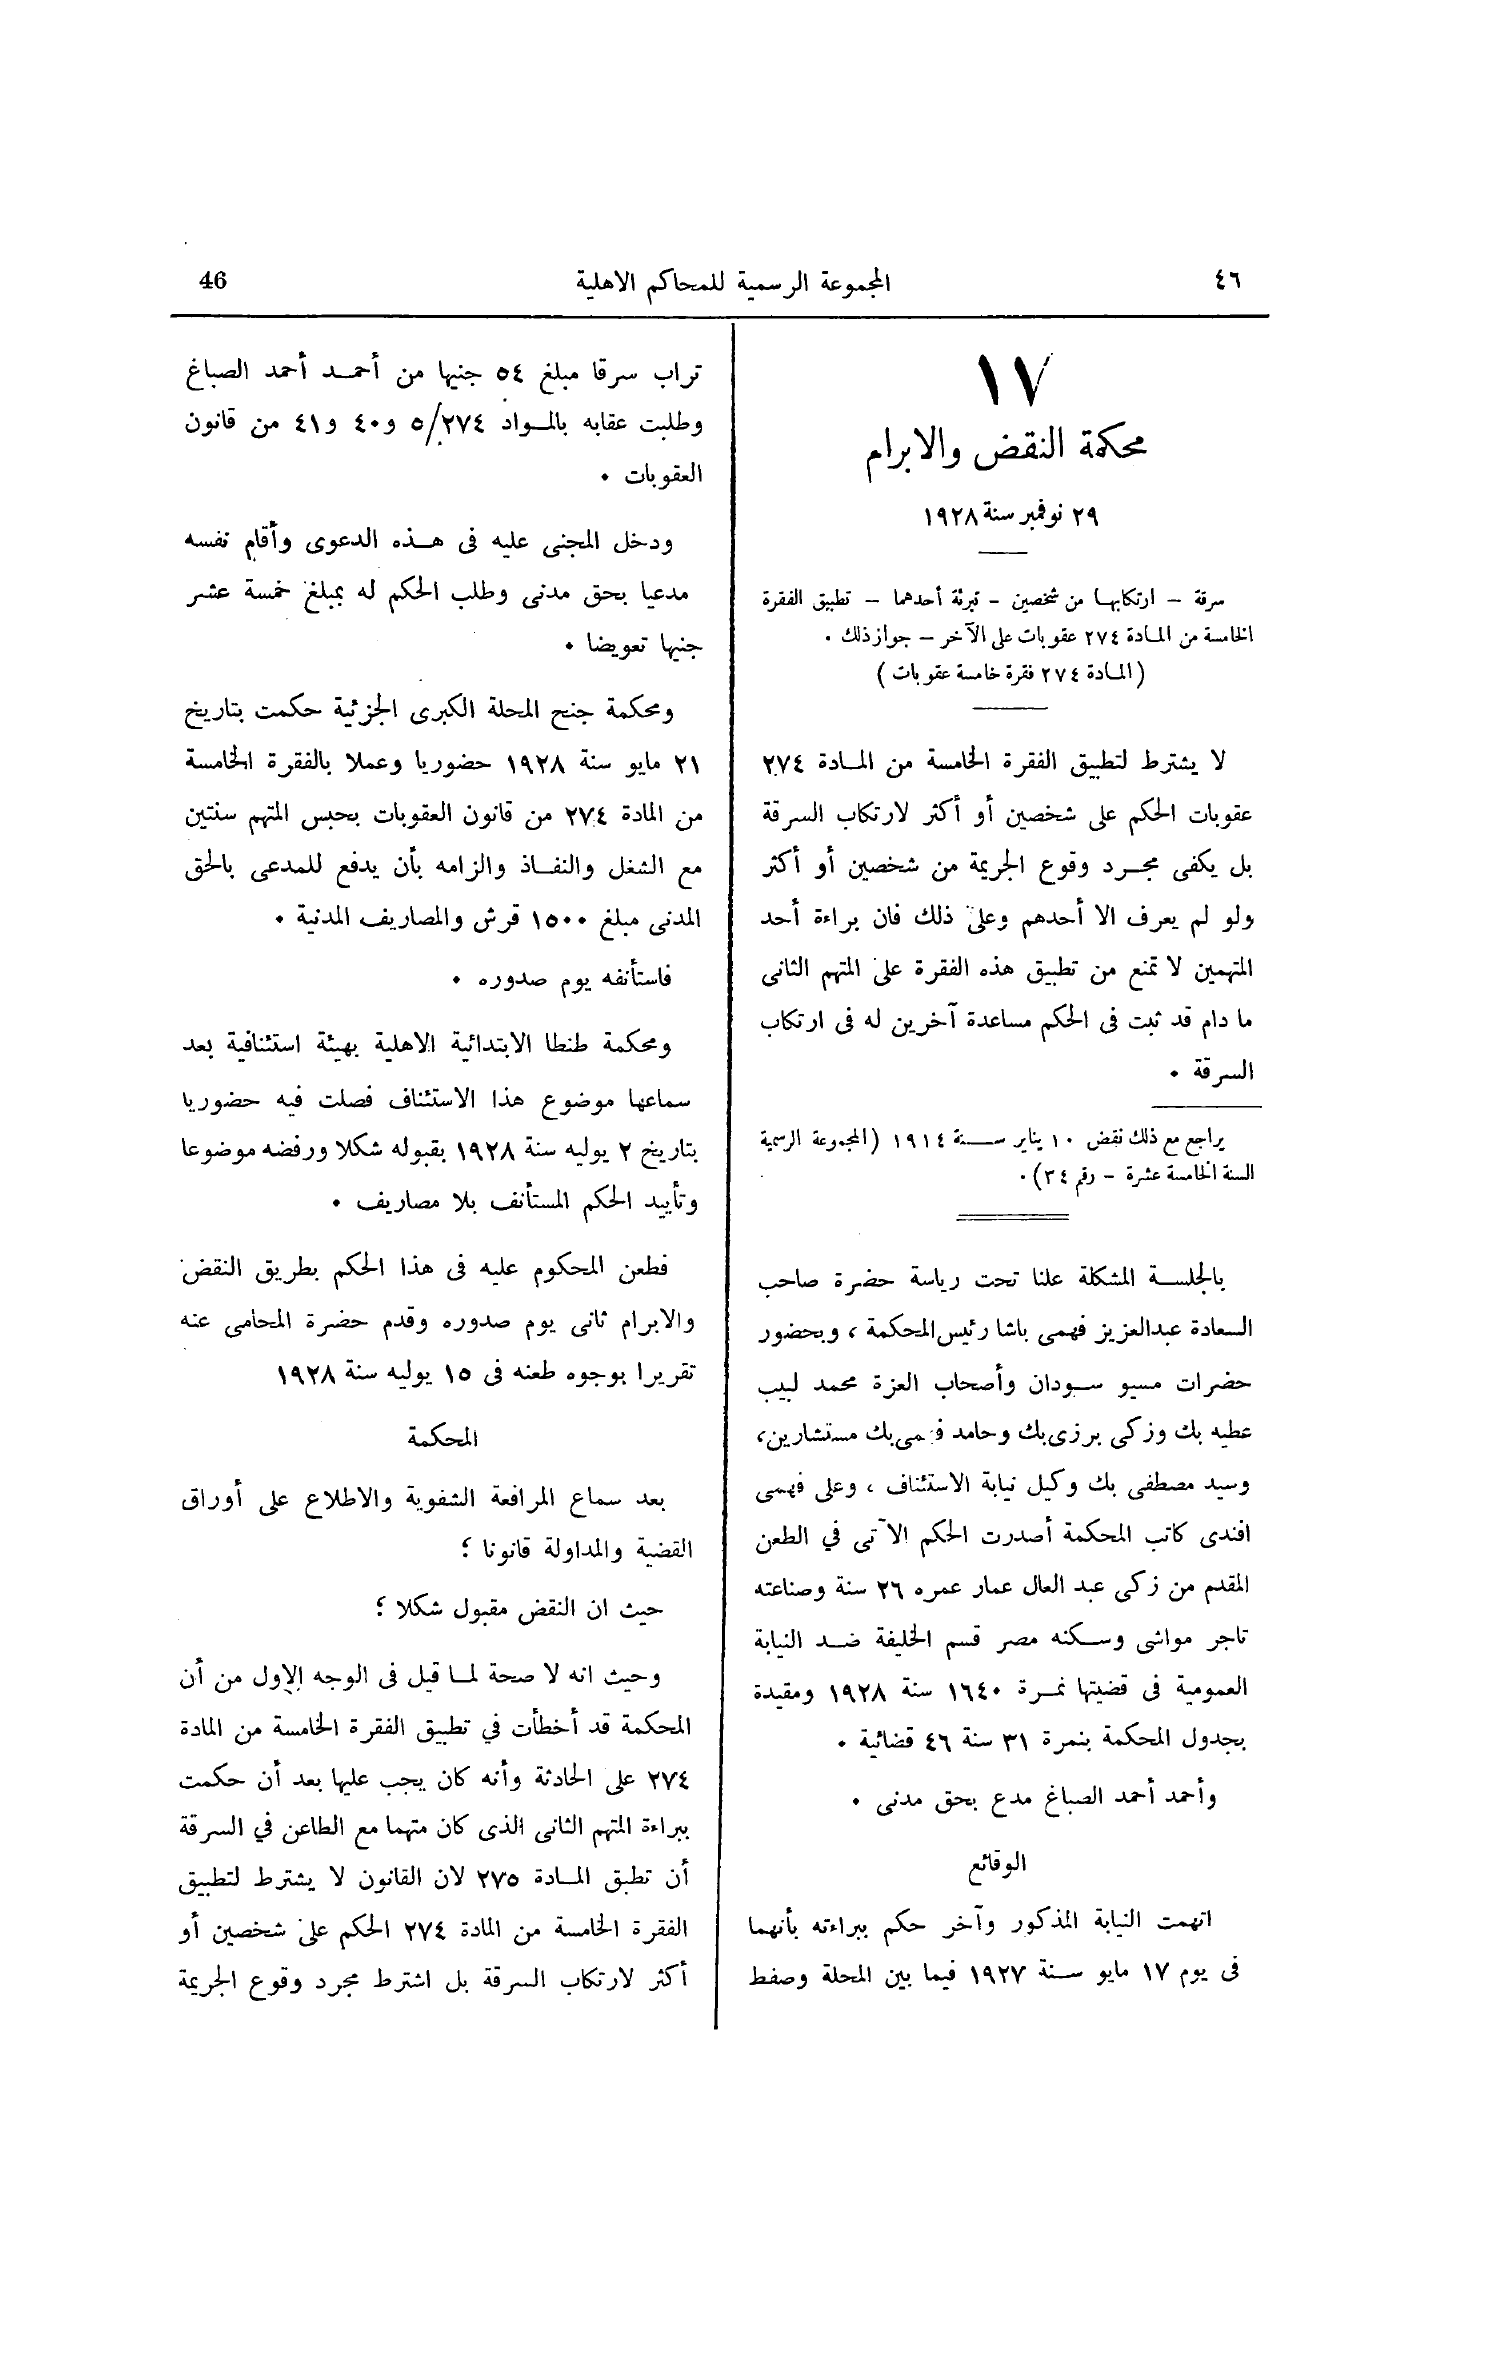 ٤٦
المجموعة الرسمية للمحاكم الاهلية
46
١٧
محكمة النقض والابرام
٢٩ نوفمبر سنة ١٩٢٨
سرقة – ارتكابها من شخصين – تبرئة أحدهما – تطبيق الفقرة
الخامسة من المادة ٢٧٤ عقوبات على الآخر – جواز ذلك .
(المادة ٢٧٤ فقرة خامسة عقوبات)
لا يشترط لتطبيق الفقرة الخامسة من المادة ٢٧٤
عقوبات الحكم على شخصين أو أكثر لارتكاب السرقة
بل يكفى مجرد وقوع الجريمة من شخصين أو أكثر
ولو لم يعرف الا أحدهم وعلى ذلك فان براءة أحد
المتهمين لا تمنع من تطبيق هذه الفقرة على المتهم الثانى
ما دام قد ثبت فى الحكم مساعدة آخرين له فى ارتكاب
السرقة .
يراجع مع ذلك نقض ١٠ يناير سنة ١٩١٤ (المجموعة الرسمية
السنة الخامسة عشرة – رقم ٣٤) .
بالجلسة المشكلة علنا تحت رياسة حضرة صاحب
السعادة عبدالعزيز فهمى باشا رئيس المحكمة ، وبحضور
حضرات مسيو سودان وأصحاب العزة محمد لبيب
عطيه بك وزكى برزى بك وحامد فهمى بك مستشارين،
وسيد مصطفى بك وكيل نيابة الاستئناف ، وعلى فهمى
افندى كاتب المحكمة أصدرت الحكم الآتى في الطعن
المقدم من زكى عبد العال عمار عمره ٢٦ سنة وصناعته
تاجر مواشى وسكنه مصر قسم الخليفة ضد النيابة
العمومية فى قضيتها نمرة ١٦٤٠ سنة ١٩٢٨ ومقيدة
بجدول المحكمة بنمرة ٣١ سنة ٤٦ قضائية .
وأحمد أحمد الصباغ مدع بحق مدنى .
الوقائع
اتهمت النيابة المذكور وآخر حكم ببراءته بأنهما
فى يوم ١٧ مايو سنة ١٩٢٧ فيما بين المحلة وصفط
تراب سرقا مبلغ ٥٤ جنيها من أحمد أحمد الصباغ
وطلبت عقابه بالمواد ٥/٢٧٤ و٤٠ و٤١ من قانون
العقوبات .
ودخل المجنى عليه فى هذه الدعوى وأقام نفسه
مدعيا بحق مدنى وطلب الحكم له بمبلغ خمسة عشر
جنيها تعويضا .
ومحكمة جنح المحلة الكبرى الجزئية حكمت بتاريخ
٢١ مايو سنة ١٩٢٨ حضوريا وعملا بالفقرة الخامسة
من المادة ٢٧٤ من قانون العقوبات بحبس المتهم سنتين
مع الشغل والنفاذ والزامه بأن يدفع للمدعى بالحق
المدنى مبلغ ١٥٠٠ قرش والمصاريف المدنية .
فاستأنفه يوم صدوره .
ومحكمة طنطا الابتدائية الاهلية بهيئة استئنافية بعد
سماعها موضوع هذا الاستئناف فصلت فيه حضوريا
بتاريخ ٢ يوليه سنة ١٩٢٨ بقبوله شكلا ورفضه موضوعا
وتأييد الحكم المستأنف بلا مصاريف .
فطعن المحكوم عليه فى هذا الحكم بطريق النقض
والابرام ثانى يوم صدوره وقدم حضرة المحامى عنه
تقريرا بوجوه طعنه فى ١٥ يوليه سنة ١٩٢٨
المحكمة
بعد سماع المرافعة الشفوية والاطلاع على أوراق
القضية والمداولة قانونا ؛
حيث ان النقض مقبول شكلا ؛
وحيث انه لا صحة لما قيل فى الوجه الاول من أن
المحكمة قد أخطأت في تطبيق الفقرة الخامسة من المادة
٢٧٤ على الحادثة وأنه كان يجب عليها بعد أن حكمت
ببراءة المتهم الثانى الذى كان متهما مع الطاعن في السرقة
أن تطبق المادة ٢٧٥ لان القانون لا يشترط لتطبيق
الفقرة الخامسة من المادة ٢٧٤ الحكم على شخصين أو
أكثر لارتكاب السرقة بل اشترط مجرد وقوع الجريمة